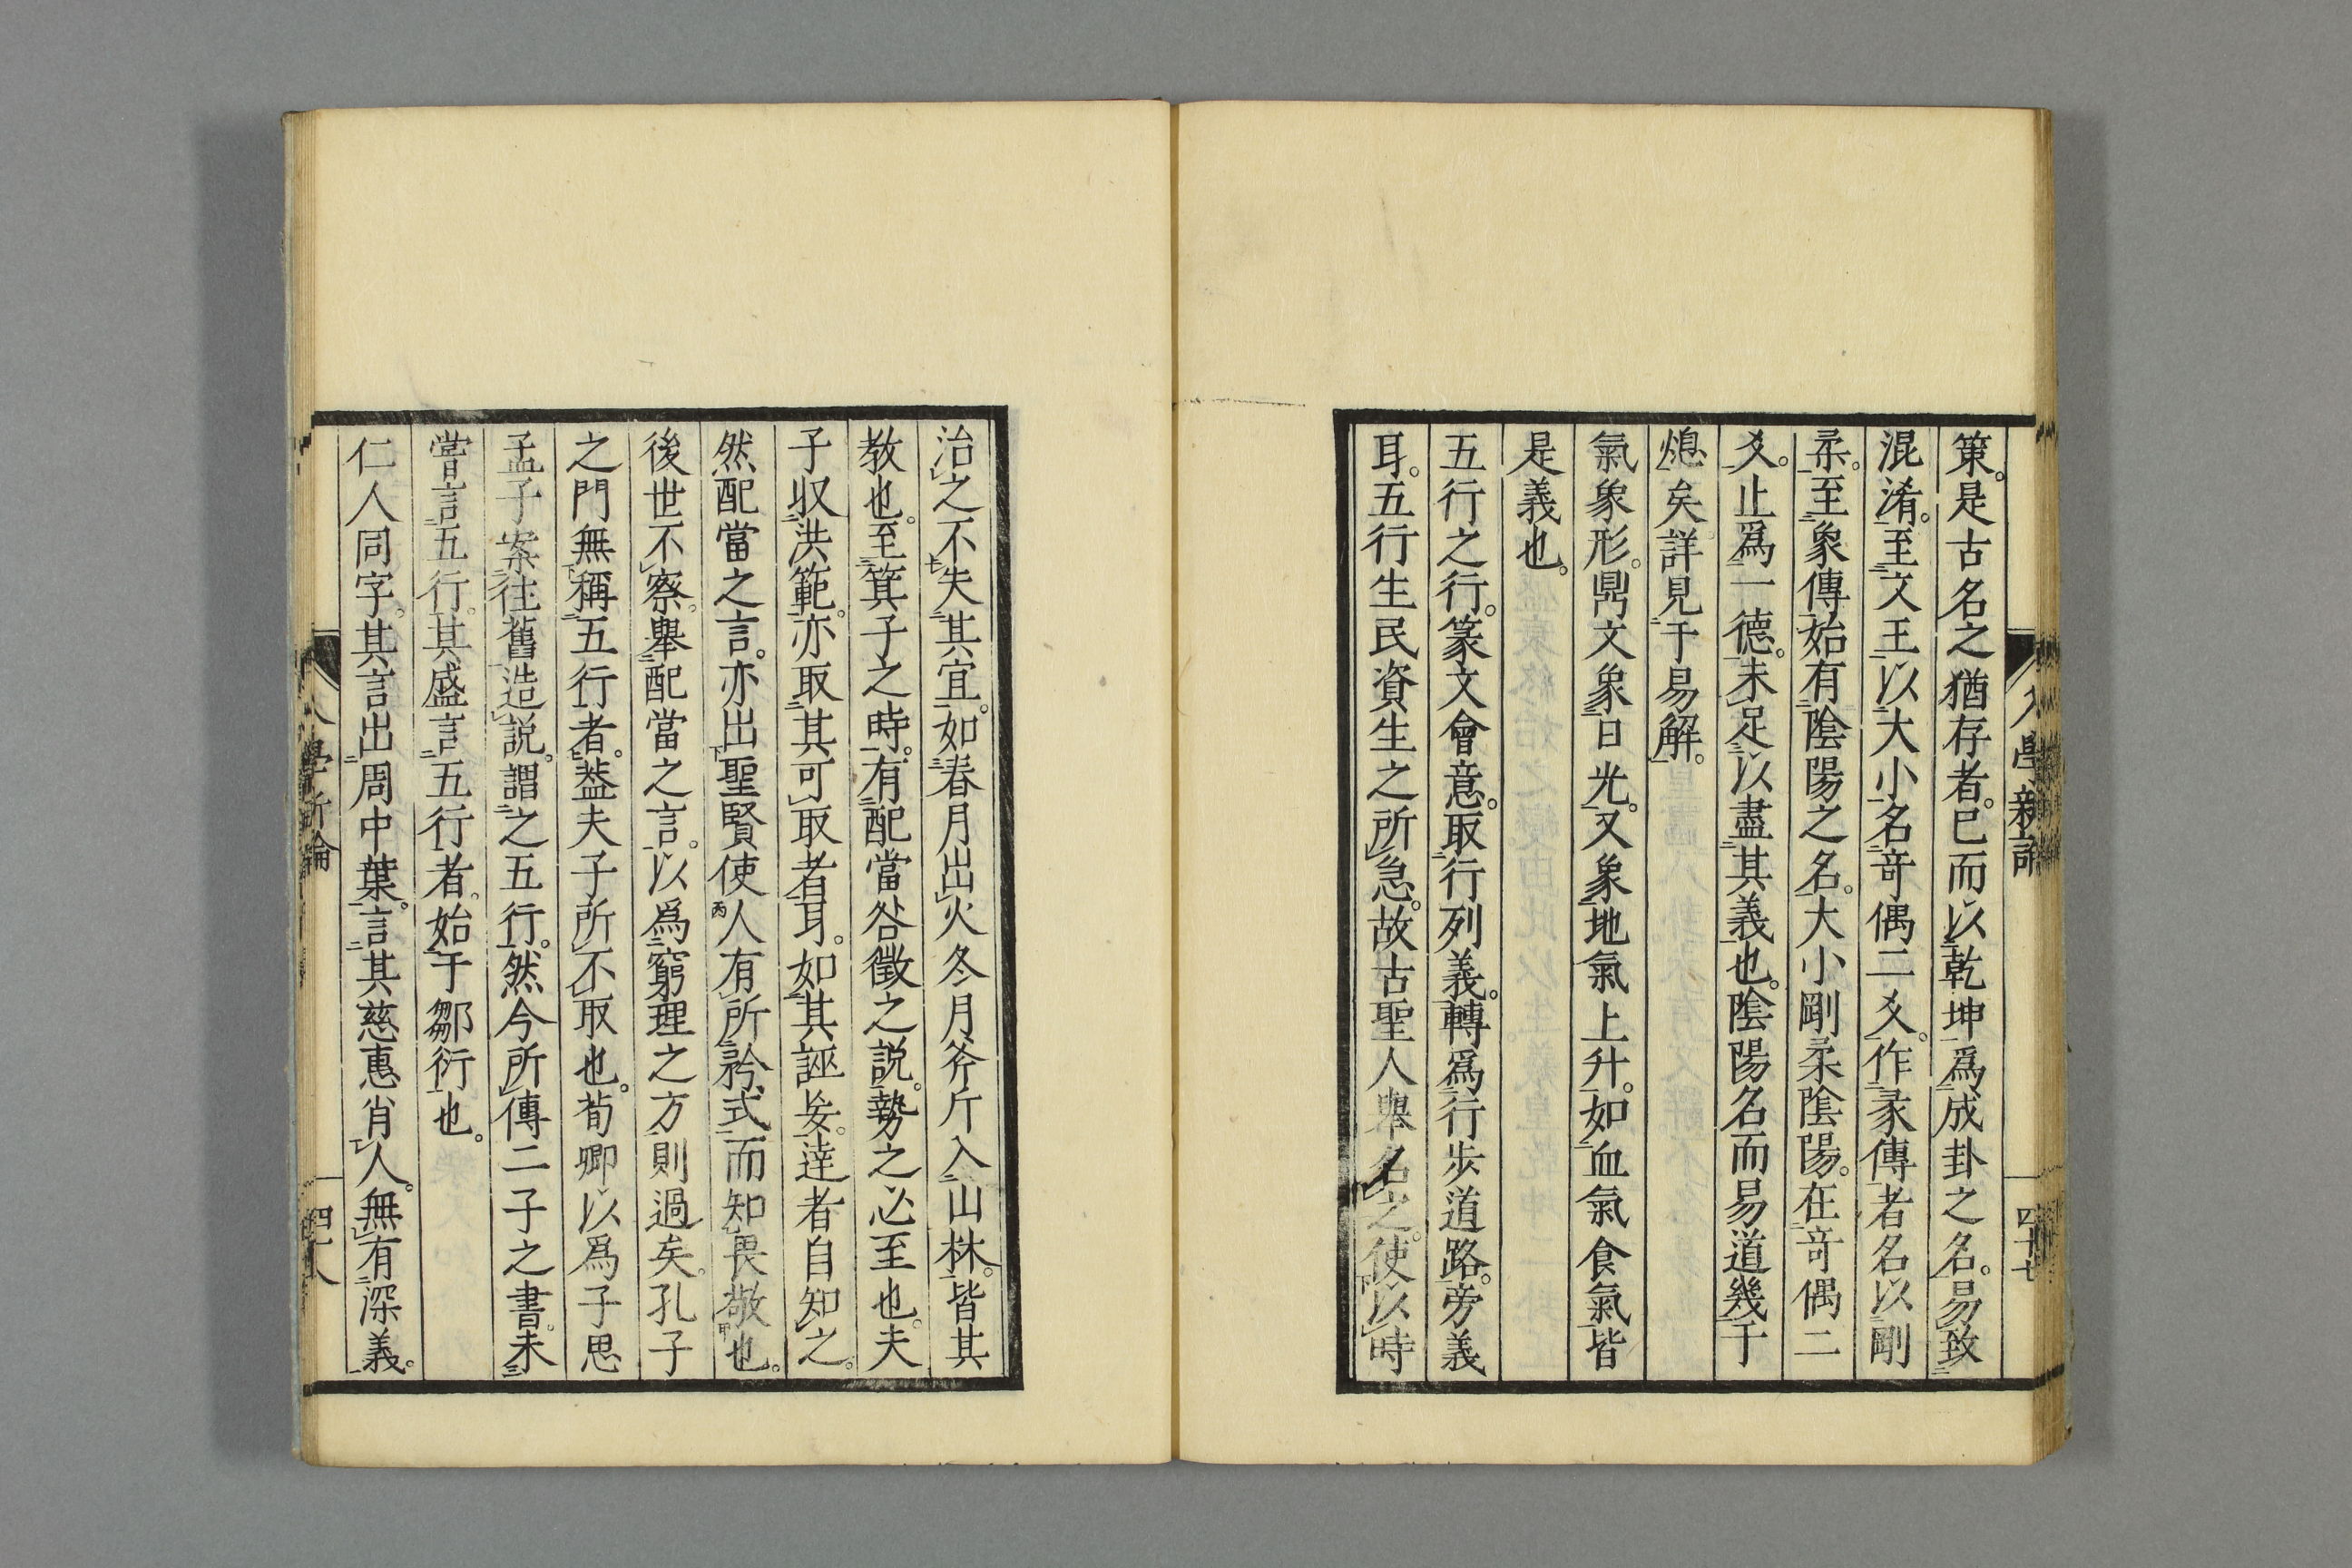 策。是古名之猶存者。已而以乾坤爲成卦之名。易致
混淆。至文王以大小名竒偶二爻。作彖傳者名以剛
柔。至象傳始有陰陽之名。大小剛柔陰陽。在竒偶二
爻。止爲一德。未足以盡其義也。陰陽名而易道幾于
熄矣。詳見于易解。
氣象形。鼎文象日光。又象地氣上升。如血氣食氣皆
是義也。
五行之行。篆文會意。取行列義。轉爲行步道路。旁義
耳。五行生民資生之所急。故古聖人舉名之。使以時
四十七
治之不失其宜。如春月出火冬月斧斤入山林。皆其
教也。至箕子之時。有配當咎徵之説。勢之必至也。夫
子収洪範。亦取其可取者耳。如其誣妄。達者自知之。
然配當之言。亦出聖賢使人有所矜式而知畏敬也。
後世不察。舉配當之言。以爲窮理之方則過矣。孔子
之門無稱五行者。葢夫子所不取也。荀卿以爲子思
孟子案往舊造説。謂之五行。然今所傳二子之書。未
嘗言五行。其盛言五行者。始于鄒衍也。
仁人同字。其言出周中葉。言其慈惠肖人。無有深義。